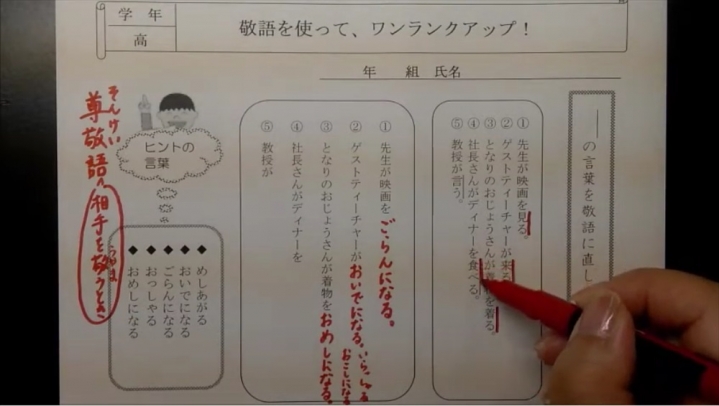 学年
高
敬語を使って、ワンランクアップ！
年　組　氏名
の言葉を敬語に直し
① 先生が映画を見る。
② ゲストティーチャーが来る
③ となりのおじょうさんが着物を着る。
④ 社長さんがディナーを食べる。
⑤ 教授が言う。
① 先生が映画をごらんになる。
② ゲストティーチャーがおいでになる。
いらっしゃる
おこしになる
③ となりのおじょうさんが着物をおめしになる。
④ 社長さんがディナーを
⑤ 教授が
ヒントの
言葉
◆ めしあがる
◆ おいでになる
◆ ごらんになる
◆ おっしゃる
◆ おめしになる
そんけい
尊敬語
うやま
相手を敬う